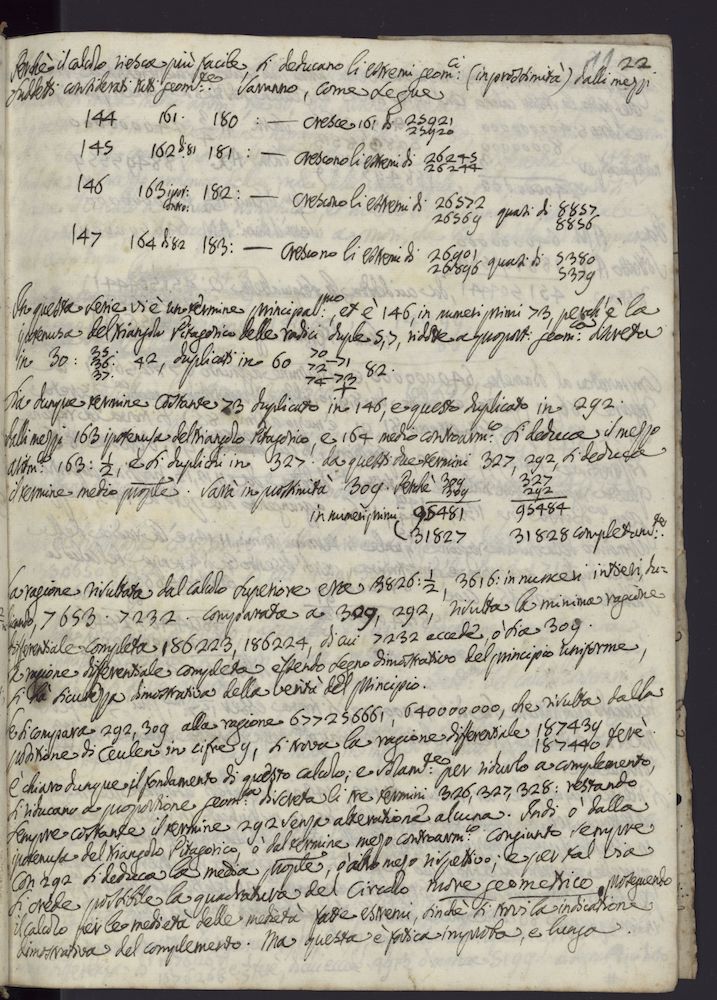 22
Perchè il calcolo riesca più facile si deducano li estremi geom:ci (in prossimità) dalli mezzi
sudetti considerati tutti geom:ce. Saranno, come segue
144 161. 180 : — cresce 161 di 25921 25920
145 162 di 81 181 : — crescono li estremi di 26245 26244
146 163 ipot: 182 : — crescono li estremi di 26572 26569 quasi di 8857 8856
147 164 di 82 183 : — crescono li estremi di 26901 26896 quasi di 5380 5379
In questa serie vi è un termine principal:mo, et è 146, in numeri primi 73, perch'è la
ipotenusa del triangolo Pitagorico delle radici duple 5,7, ridotte a proport. geom:ca discreta
in 30 : 35. 36. 37. 42, duplicati in 60 70 – 71 72 74 – 73 82.
Sia dunque termine costante 73 duplicato in 146, e questo duplicato in 292.
Dalli mezzi 163 ipotenusa del triangolo Pitagorico, e 164 medio contrarm:co si deduca il mezzo
aritm:co 163 : 1/2, e si duplichi in 327. da questi due termini 327, 292, si deduca
il termine medio . Sarà in prossimità 309. Perchè 309 309 327 292
in numeri primi 95481 95484
31827 31828 completam:te.
La ragione risultata dal calcolo superiore era 3826 : 1/2, 3616 : in numeri intieri, du-
plicando, 7653. 7232. comparata a 309, 292, risulta la minima ragione
differenziale completa 186223, 186224, di cui 7232 eccede, ò sia 309.
La ragione differenziale completa essendo segno dimostrativo del principio uniforme,
si dà sicurezza dimostrativa della verità del principio.
Se si compara 292, 309 alla ragione 677256661, 640000000, che risulta dalla
posizione di Ceulen in cifre 9, si trova la ragione differenziale 187439 187440
E chiaro dunque il fondamento di questo calcolo; e per ridurlo a complemento,
si riducano a proportione geom:ca discreta li tre termini 326, 327, 328 : restando
sempre costante il termine 292 senza alterazione alcuna. Indi ò dalla
ipotenusa del triangolo Pitagorico, ò dal termine mezo contrarm:co congiunto sempre
con 292 si deduca la media , ò altro mezo rispettivo; e per tal via
si crede possibile la quadratura del Circolo more geometrico, proseguendo
il calcolo per le medietà delle medietà fatte estremi, sinchè si trovi la indicazione
dimostrativa del complemento. Ma questa è fatica improba, e lunga.